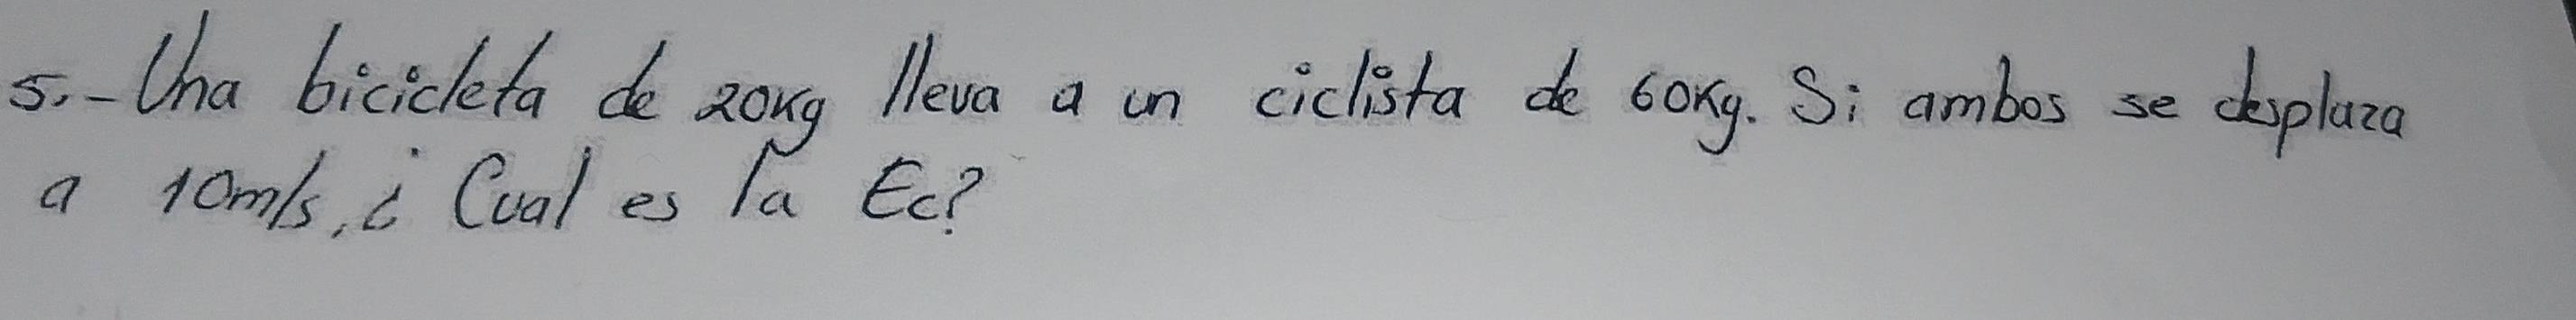 5.- Una bicicleta de 20Kg lleva a un ciclista de 60Kg. Si ambos se desplaza
a 10m/s, ¿Cual es la Ec?